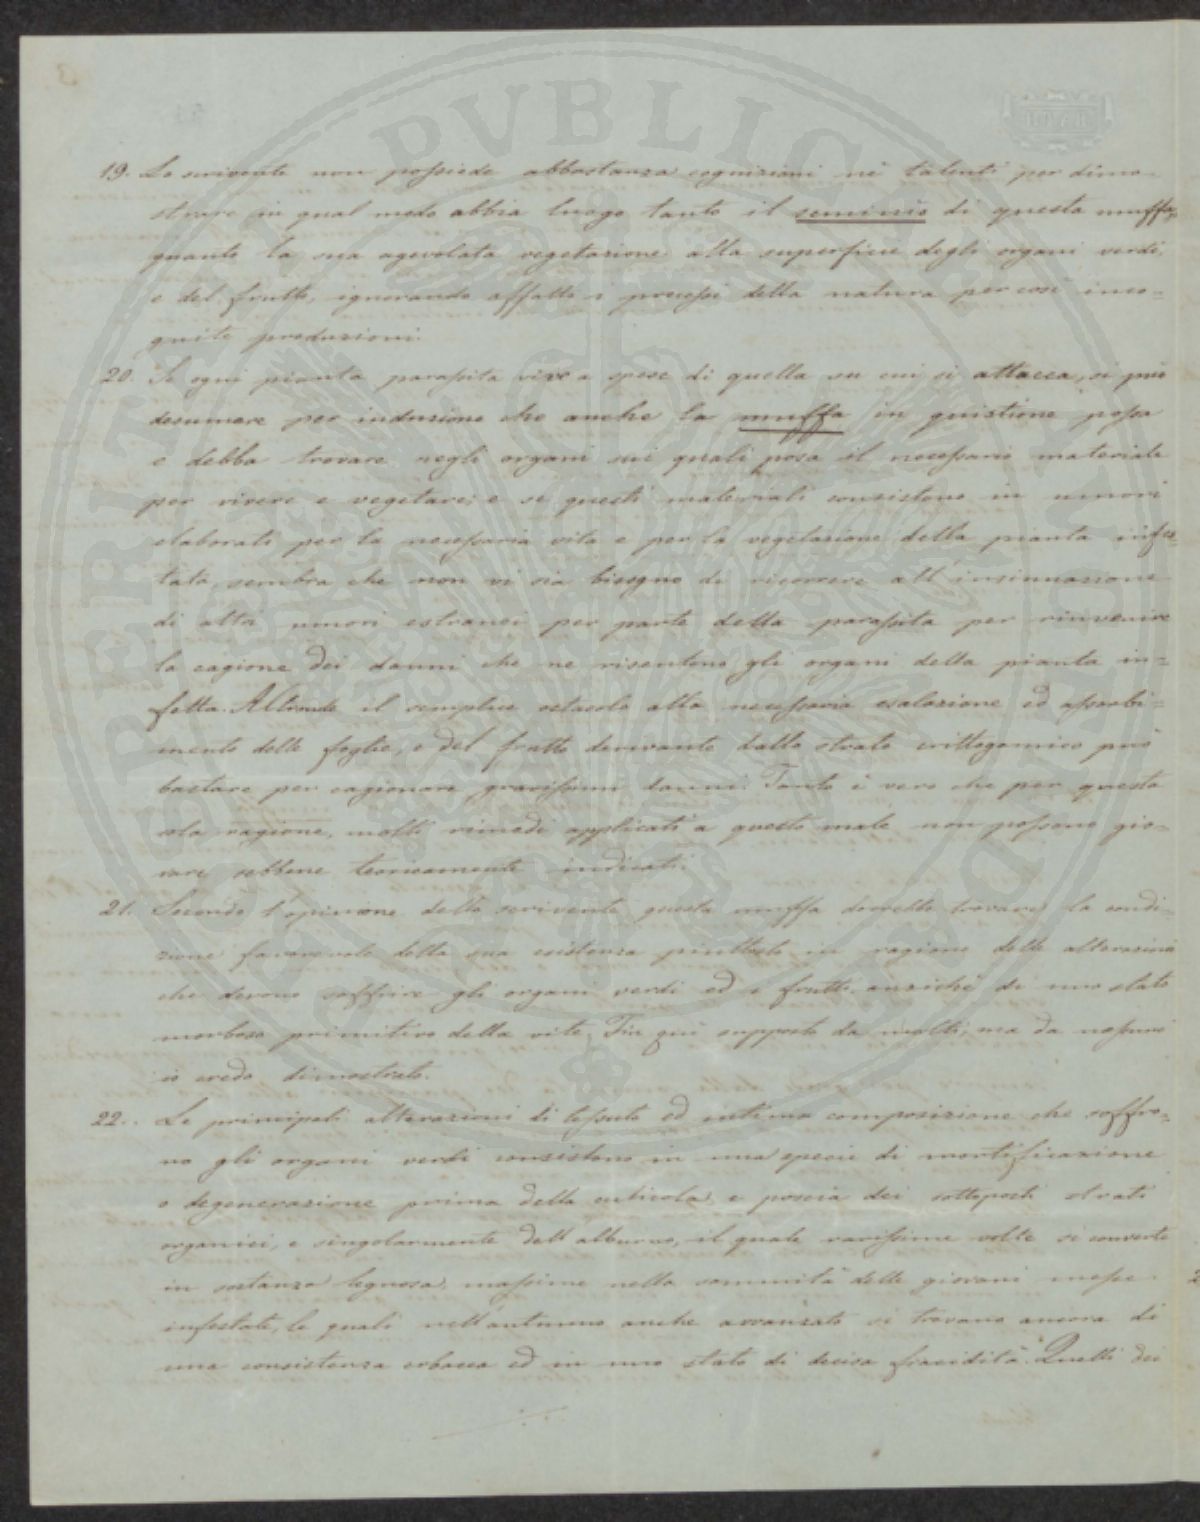 19. Lo scrivente non possiede abbastanza cognizioni nè talenti per dimo-
strare in qual modo abbia luogo tanto il seminio di questa muffa,
quanto la sua agevolata vegetazione alla superficie degli organi verdi,
e del frutto, ignorando affatto i processi della natura per così inco=
gnite produzioni.
20. Se ogni pianta parassita vive a spese di quella su cui si attacca, si può
desumere per induzione che anche la muffa in quistione possa
e debba trovare negli organi sui quali posa il necessario materiale
per vivere e vegetare; e se questi materiali consistono in umori
elaborati per la necessaria vita e per la vegetazione della pianta infes=
tata, sembra che non vi sia bisogno di ricorrere all'insinuazione
di altri umori estranei per parte della parassita per rinvenire
la cagione dei danni che ne risentono gli organi della pianta in=
fetta. Altronde il semplice ostacolo alla necessaria esalazione ed assorbi=
mento delle foglie, e del frutto derivante dallo strato crittogamico può
bastare per cagionare gravissimi danni. Tanto è vero che per questa
sola ragione, molti rimedi applicati a questo male non possono gio-
vare sebbene teoricamente indicati.
21. Secondo l'opinione dello scrivente questa muffa dovrebbe trovare la condi-
zione favorevole della sua esistenza piuttosto in ragione delle alterazioni
che devono soffrire gli organi verdi ed i frutti anzichè di uno stato
morboso primitivo della vite, fin quì supposto da molti, ma da nessuno
io credo dimostrato.
22. Le principali alterazioni di tessuto ed intima composizione che soffro=
no gli organi verdi consistono in una specie di mortificazione
o degenerazione prima della cuticola, e poscia dei sottoposti strati
organici, e singolarmente dell'alburno, il quale rarissime volte si converte
in sostanza legnosa, massime nella sommità delle giovani messe
infestate, le quali nell'autunno anche avanzato si trovano ancora di
una consistenza erbacea ed in uno stato di decisa fracidità. Quelli dei